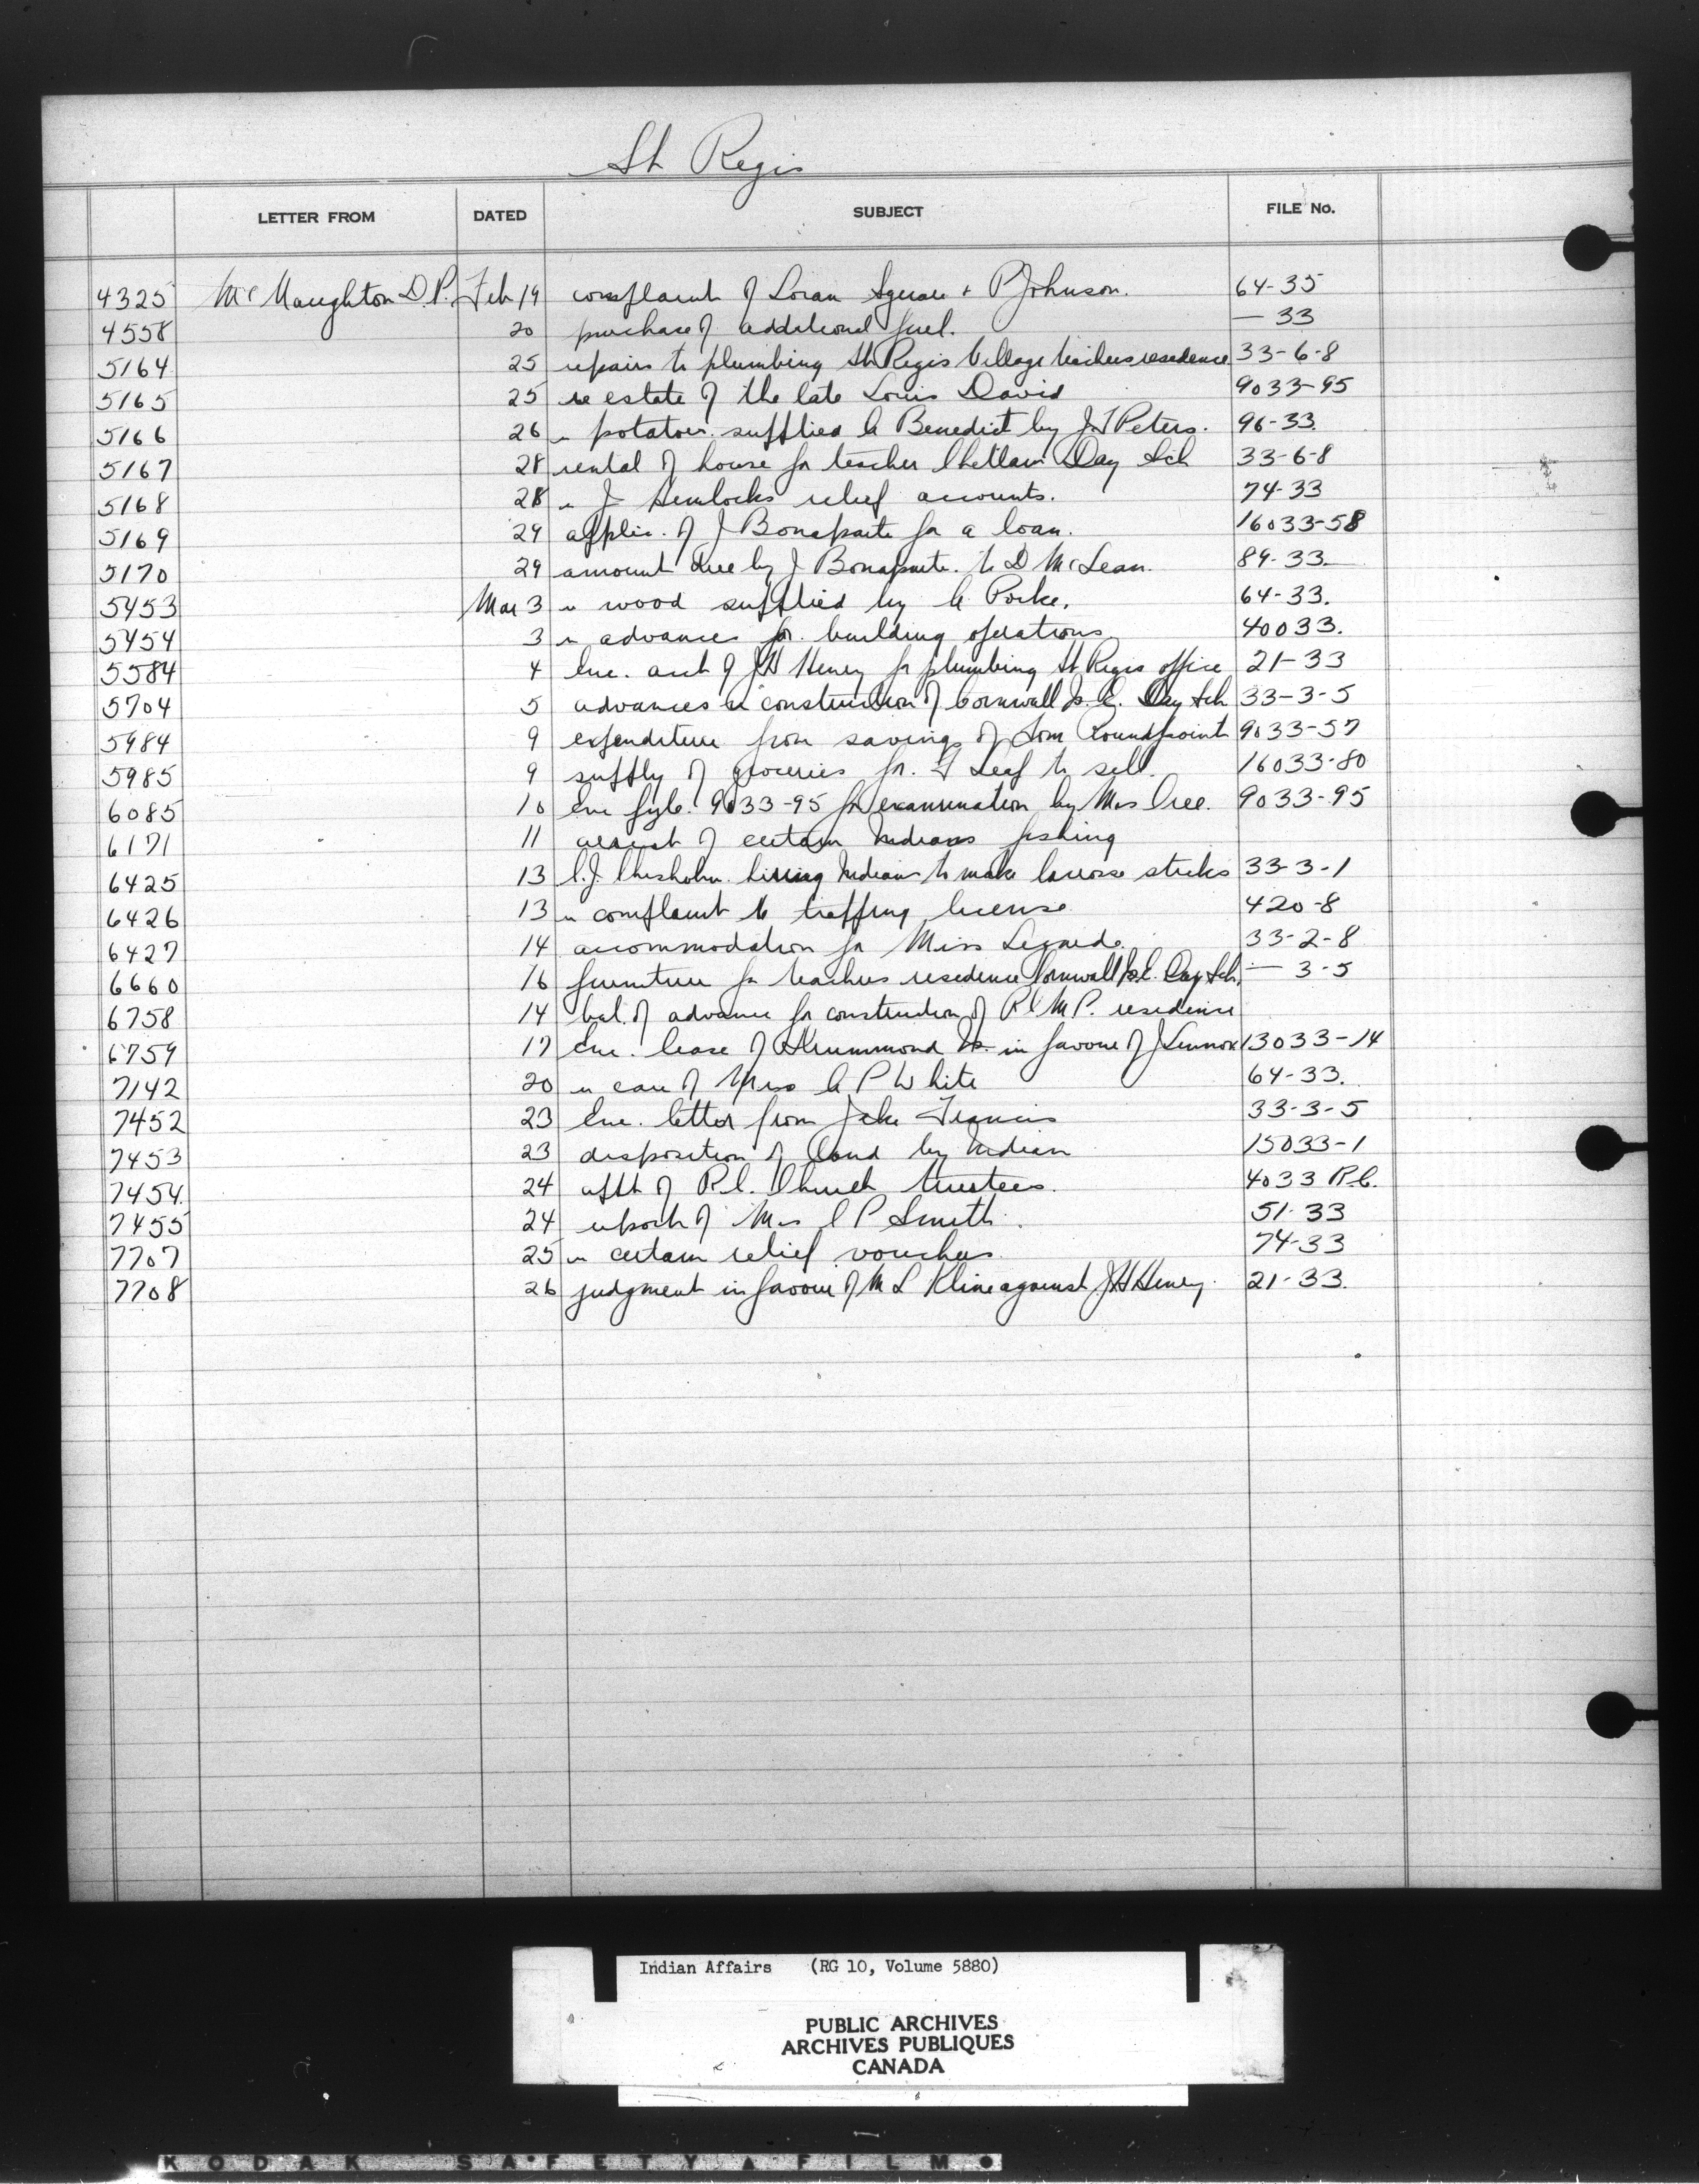 St Regis
LETTER FROM DATED SUBJECT FILE No.
4325 McNaughton D.P. Feb 19 complaint of Loran Square + P Johnson. 64-35
4558 20 purchase of additional fuel. — 33
5164 25 repairs to plumbing St Regis Village teachers residence 33-6-8
5165 25 re estate of the late Louis David 9033-95
5166 26 " potatoes supplied A Benedict by J.T Peters. 96-33.
5167 28 rental of house for teacher Chetlain Day Sch 33-6-8
5168 28 " J Hemlocks relief accounts. 74-33
5169 29 applic. of J Bonaparte for a loan. 16033-58
5170 29 amount due by J Bonaparte. to D McLean. 89-33.
5453 Mar 3 " wood supplied by A Porke. 64-33.
5454 3 " advances for building operations 40033.
5584 4 Enc. acct of J H Heney for plumbing St Regis office 21-33
5704 5 advances re construction of Cornwall Is. Day Sch 33-3-5
5984 9 expenditure from savings of Tom Roundpoint 9033-57
5985 9 supply of groceries for. Leaf to sell. 16033-80
6085 10 Enc 9033-95 for examination by Mrs Cree. 9033-95
6171 11 arrest of certain Indians fishing
6425 13 C.J. Chisholm hiring Indians to make lacrosse sticks 33-3-1
6426 13 " complaint re trapping license 420-8
6427 14 accommodation for Miss Legarde. 33-2-8
6660 16 furniture for teachers residence Cornwall Is. Day Sch. — 3-5
6758 14 bal. of advance for construction of R C M P. residence
6759 17 Enc. lease of Drummond Is. in favour of J Lennox 13033-14
7142 20 " care of Mrs A P White 64-33.
7452 23 Enc. letter from Jake Francis 33-3-5
7453 23 disposition of land by Indian 15033-1
7454. 24 appt of R.C. Church trustees. 4033 R.C.
7455 24 report of Mrs C P Smith. 51-33
7707 25 " certain relief vouchers 74-33
7708 26 judgment in favour of M L Kline against J H Heney. 21-33.
Indian Affairs (RG 10, Volume 5880)
PUBLIC ARCHIVES
ARCHIVES PUBLIQUES
CANADA
KODAK SAFETY FILM